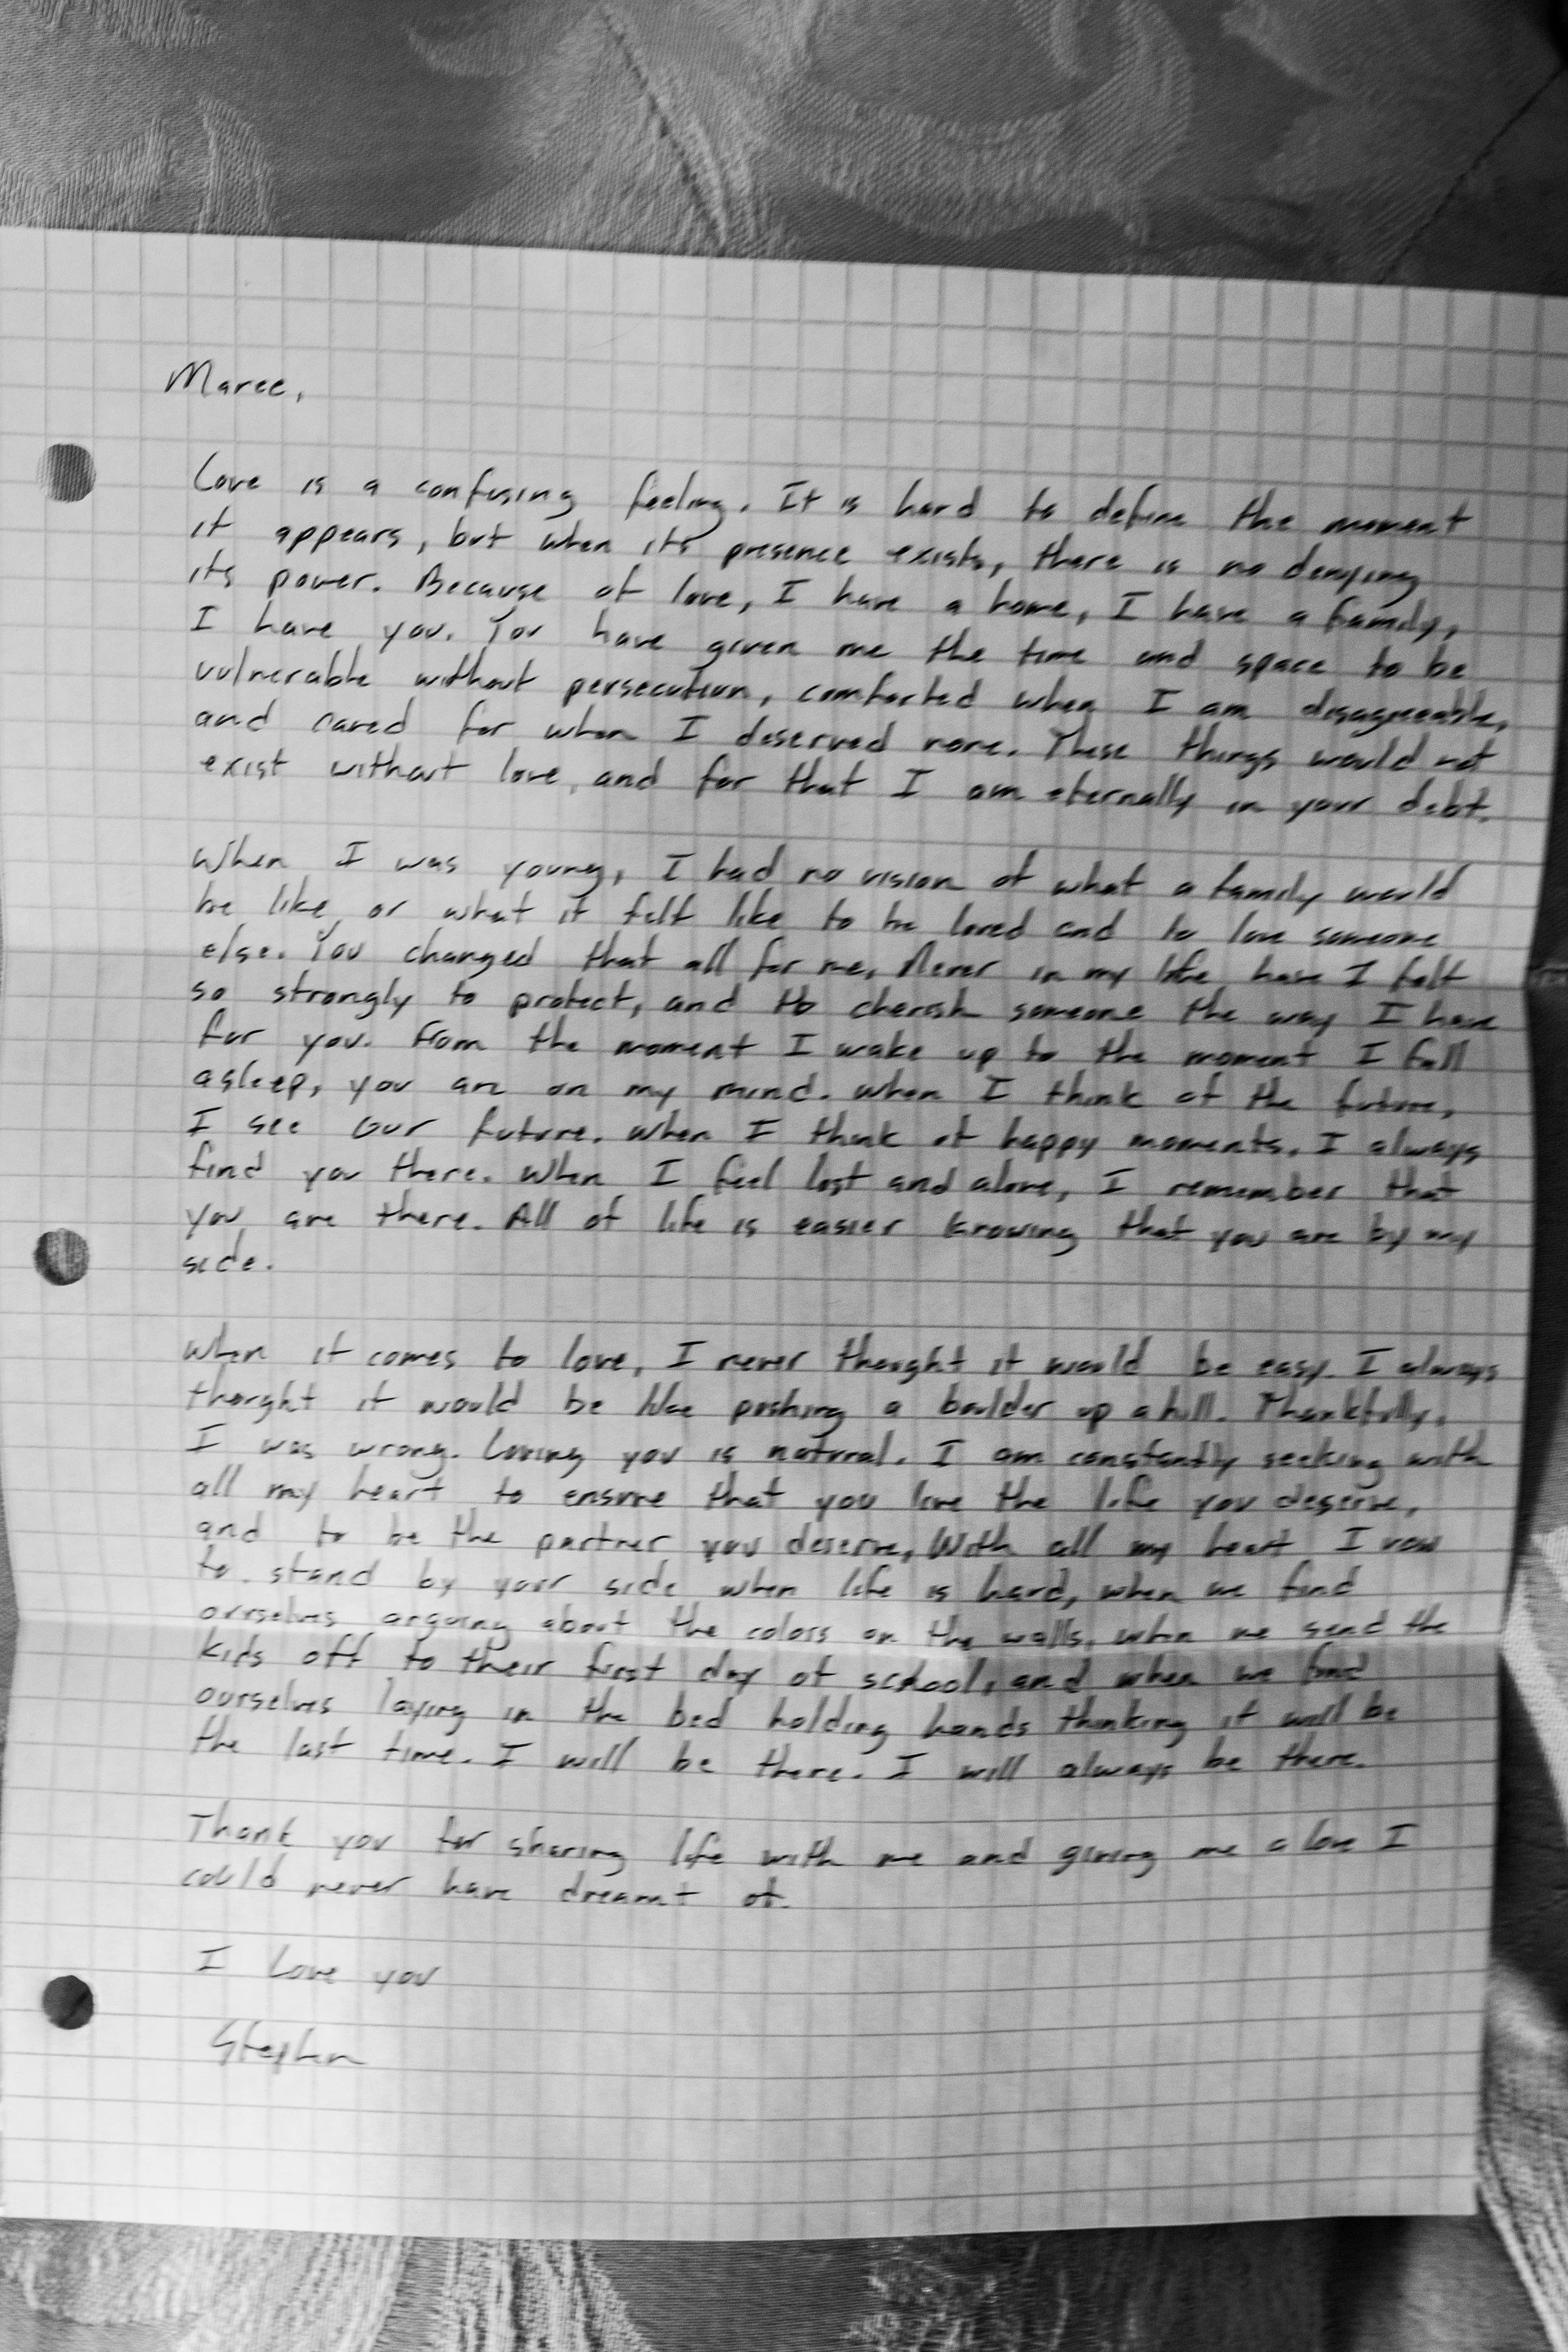 Maree,
Love is a confusing feeling. It is hard to define the moment
it appears, but when its presence exists, there is no denying
its power. Because of love, I have a home, I have a family,
I have you. You have given me the time and space to be
vulnerable without persecution, comforted when I am disagreeable,
and cared for when I deserved none. These things would not
exist without love, and for that I am eternally in your debt.
When I was young, I had no vision of what a family would
be like, or what it felt like to be loved and to love someone
else. You changed that all for me. Never in my life have I felt
so strongly to protect, and to cherish someone the way I have
for you. From the moment I wake up to the moment I fall
asleep, you are on my mind. When I think of the future,
I see our future. When I think of happy moments, I always
find you there. When I feel lost and alone, I remember that
you are there. All of life is easier knowing that you are by my
side.
When it comes to love, I never thought it would be easy. I always
thought it would be like pushing a boulder up a hill. Thankfully,
I was wrong. Loving you is natural. I am constantly seeking with
all my heart to ensure that you live the life you deserve,
and to be the partner you deserve. With all my heart I vow
to stand by your side when life is hard, when we find
ourselves arguing about the colors on the walls, when we send the
kids off to their first day of school, and when we find
ourselves laying in the bed holding hands thinking it will be
the last time. I will be there. I will always be there.
Thank you for sharing life with me and giving me a love I
could never have dreamt of.
I Love you
Stephen